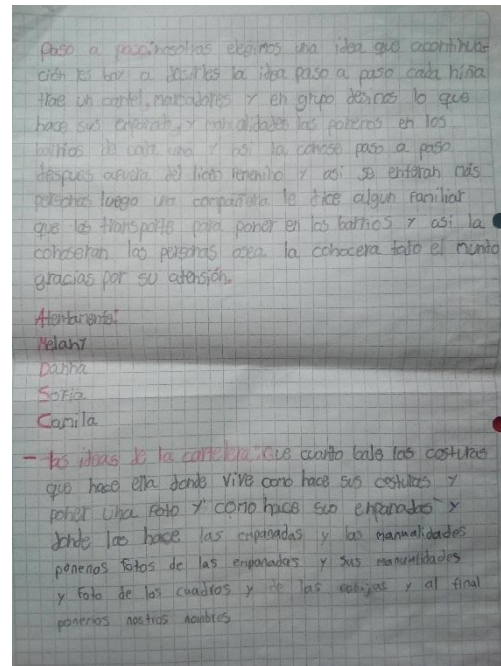 paso a paso: nosotras elegimos una idea que acontinua-
ción les boy a decirles la idea paso a paso cada niña
trae un cartel, marcadores y en grupo desimos lo que
hace sus empanadas, y manualidades las ponemos en los
barrios de cada una y asi la conose paso a paso
despues afuera del liceo femenino y asi se enteran más
personas luego una compañera le dice algun familiar
que los transporte para poner en los barrios y asi la
conoseran las personas osea la conocera todo el mundo
gracias por su atensión.
Atentamente:
Melany
Danna
Sofia
Camila
- las ideas de la cartelera: que cuanto bale las costuras
que hace ella donde vive como hace sus costuras y
poner una foto y como hace sus empanadas y
donde las hace las empanadas y las manualidades
ponemos fotos de las empanadas y sus manualidades
y foto de los cuadros y de las cobijas y al final
ponemos nostros nombres